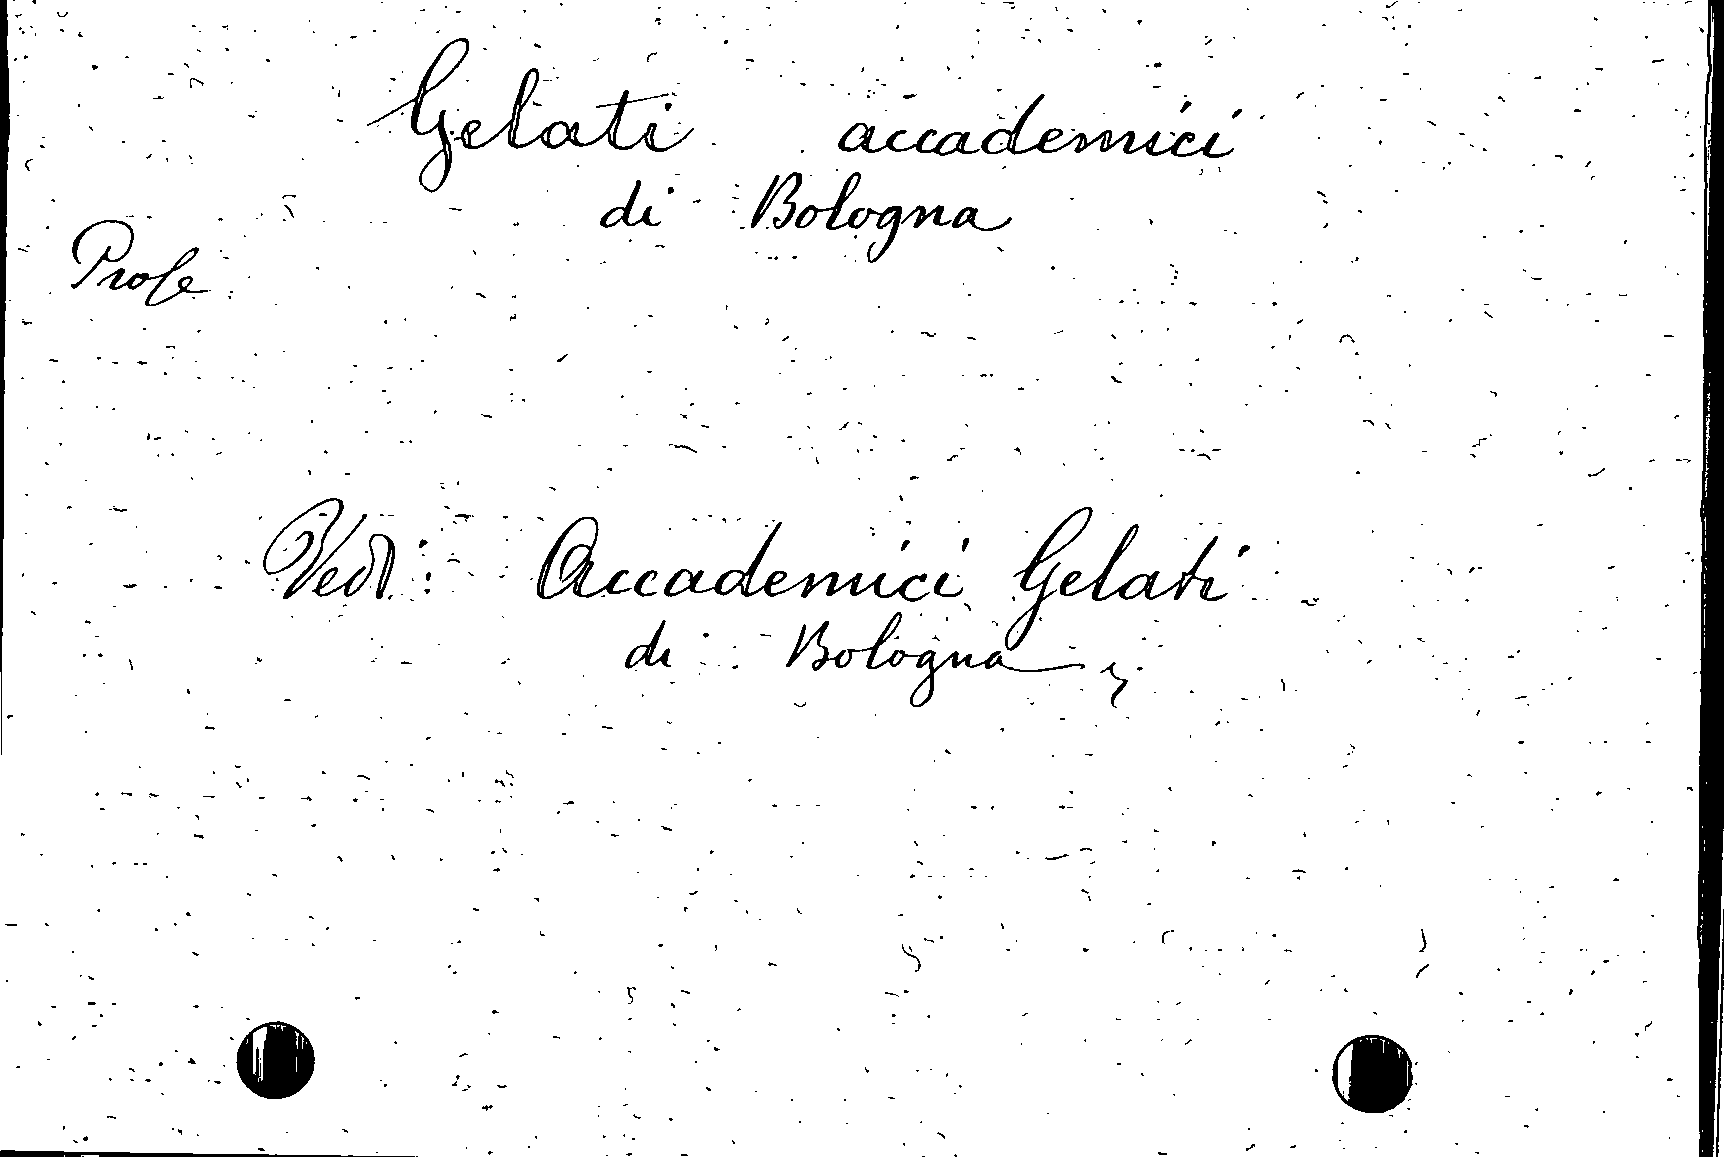 Gelati accademici
di Bologna
Prose
Vedi: Accademici Gelati
di Bologna